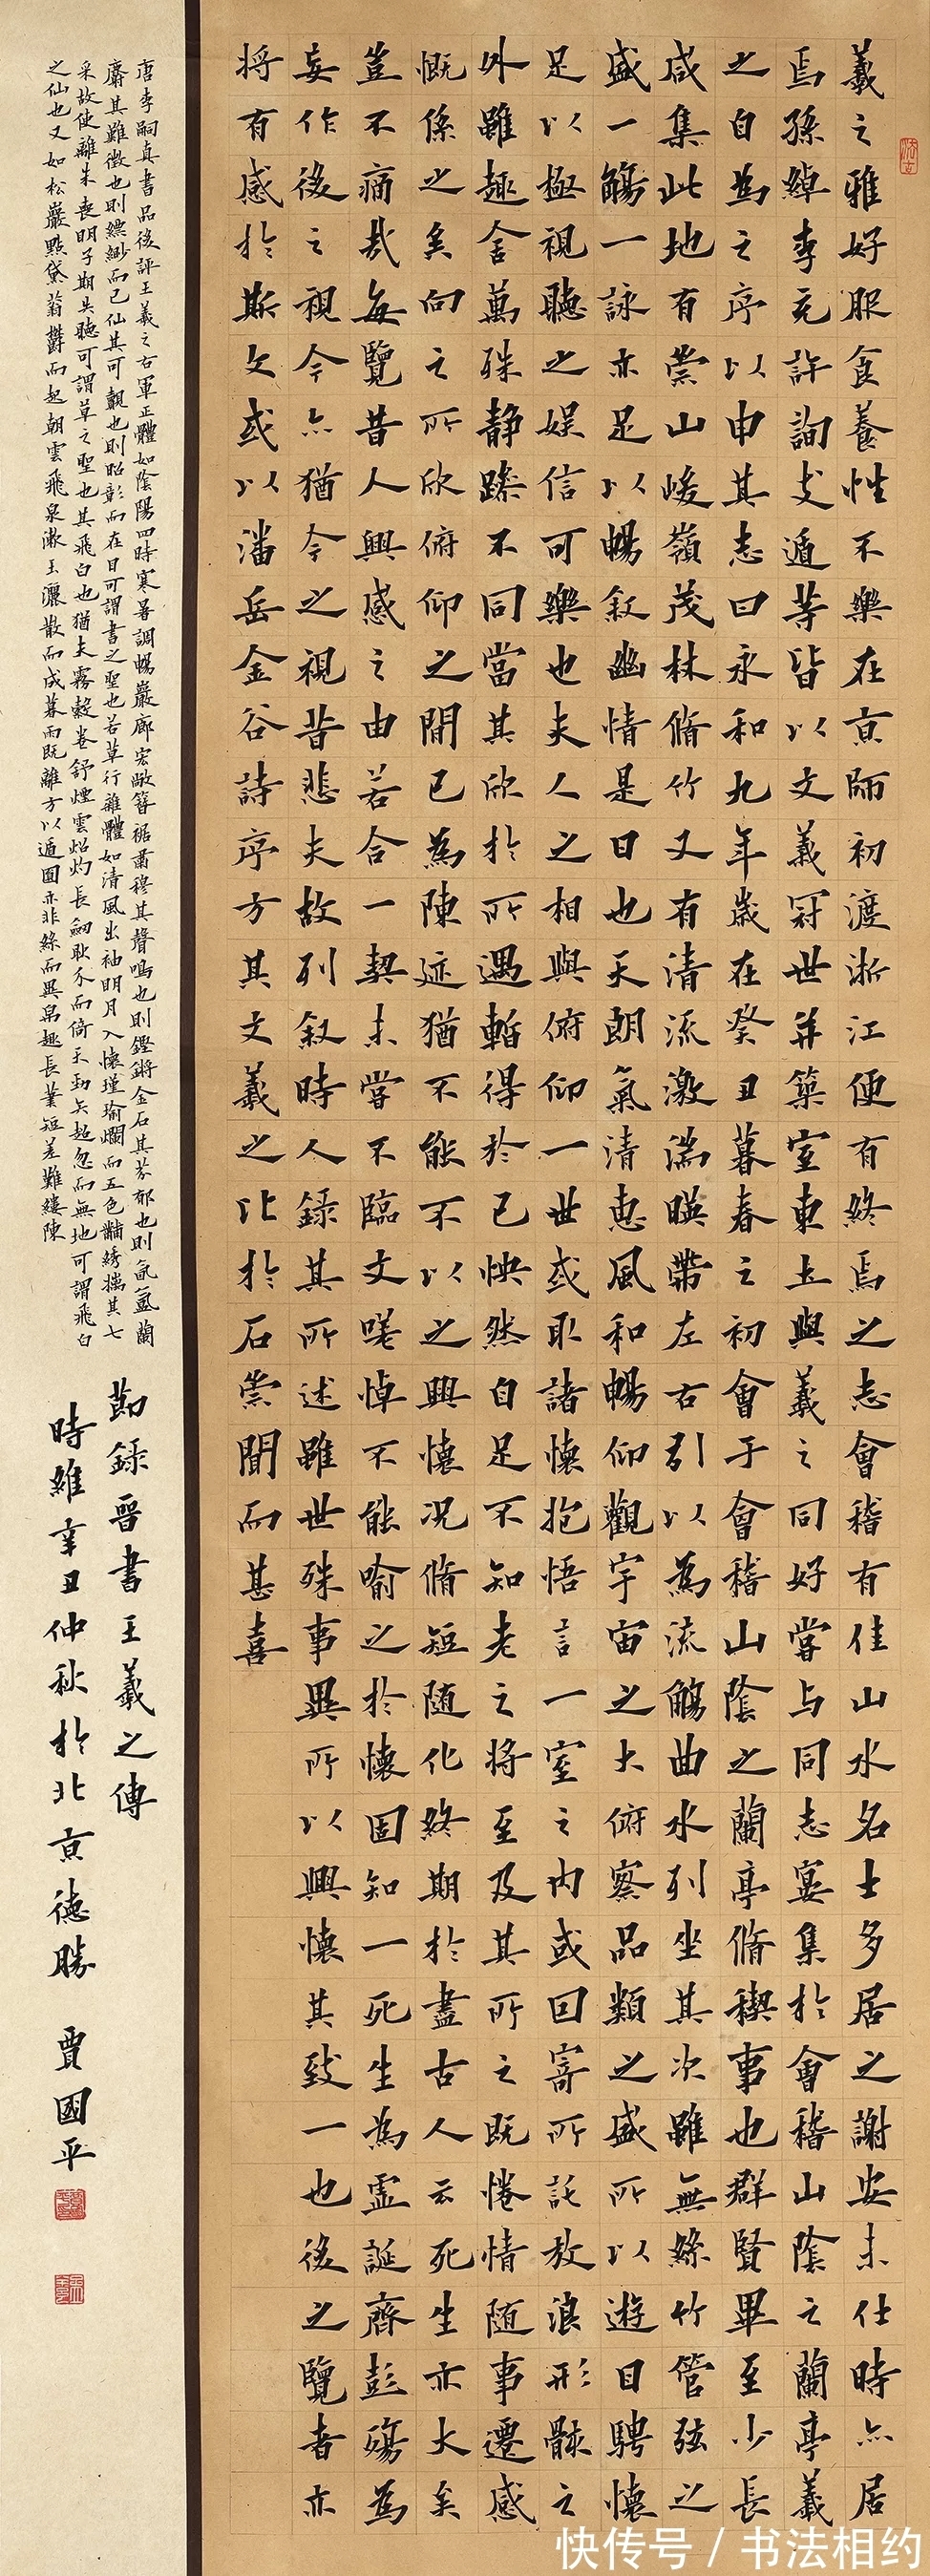 羲之雅好服食養性不樂在京師初渡浙江便有終焉之志會稽有佳山水名士多居之謝安未仕時亦居
焉孫綽李充許詢支遁等皆以文義冠世并築室東土與羲之同好嘗与同志宴集於會稽山陰之蘭亭羲
之自為之序以申其志曰永和九年歲在癸丑暮春之初會于會稽山陰之蘭亭脩稧事也群賢畢至少長
咸集此地有崇山峻嶺茂林脩竹又有清流激湍暎帶左右引以為流觴曲水列坐其次雖無絲竹管弦之
盛一觴一詠亦足以暢敘幽情是日也天朗氣清惠風和暢仰觀宇宙之大俯察品類之盛所以遊目騁懷
足以極視聽之娛信可樂也夫人之相與俯仰一世或取諸懷抱悟言一室之內或因寄所託放浪形骸之
外雖趣舍萬殊静躁不同當其欣於所遇暫得於己怏然自足不知老之將至及其所之既惓情随事遷感
慨係之矣向之所欣俯仰之間已為陳迹猶不能不以之興懷况脩短随化終期於盡古人云死生亦大矣
豈不痛哉每覽昔人興感之由若合一契未嘗不臨文嗟悼不能喻之於懷固知一死生為虛誕齊彭殤為
妄作後之視今亦猶今之視昔悲夫故列敘時人錄其所述雖世殊事異所以興懷其致一也後之覽者亦
将有感於斯文或以潘岳金谷詩序方其文羲之比於石崇聞而甚喜
唐李嗣真書品後評王羲之右軍正體如陰陽四時寒暑調暢巖廊宏敞簪裾肅穆其聲鳴也則鏗鏘金石其芬郁也則氤氳蘭
麝其難徵也則縹緲而已仙其可覿也則昭彰而在目可謂書之聖也若草行雜體如清風出袖明月入懷瑾瑜爛而五色黼綉摛其七
采故使離朱喪明子期失聽可謂草之聖也其飛白也猶夫霧縠卷舒煙雲炤灼長劒耿介而倚天勁矢超忽而無地可謂飛白
之仙也又如松巖點黛蓊鬱而起朝雲飛泉漱玉灑散而成暮雨既離方以遁圓亦非絲而異帛趣長筆短差難縷陳
節錄晉書王羲之傳
時維辛丑仲秋於北京德勝 賈國平
快传号 / 书法相约